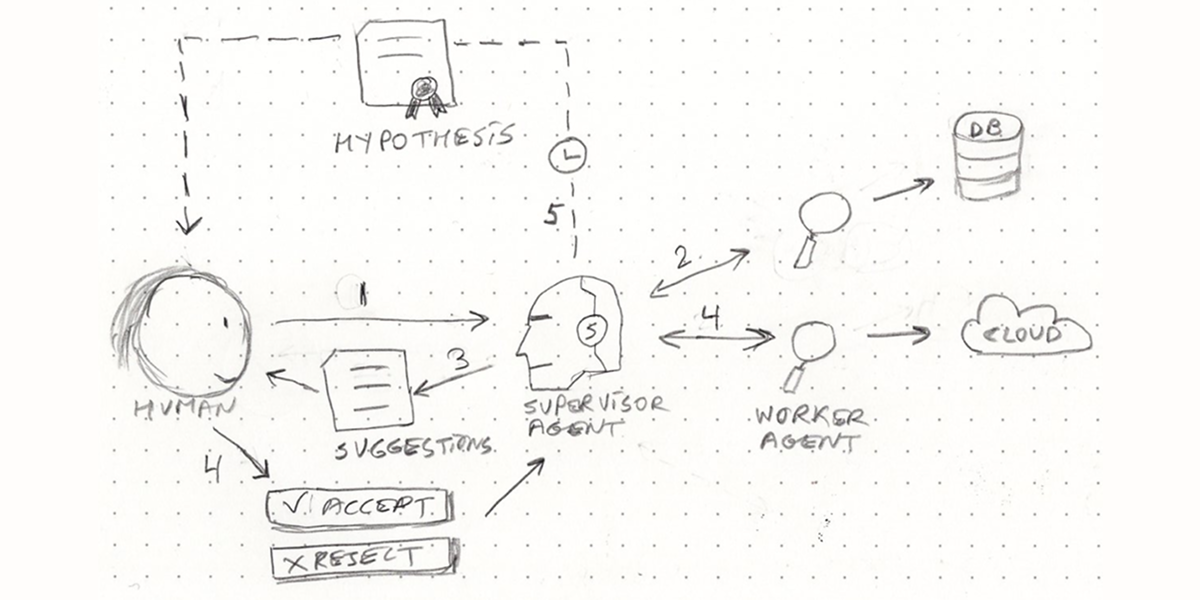 HYPOTHESIS
DB
5
2
1
4
S
CLOUD
3
HUMAN
SUPERVISOR
AGENT
WORKER
AGENT
SUGGESTIONS
4
✓ ACCEPT
X REJECT